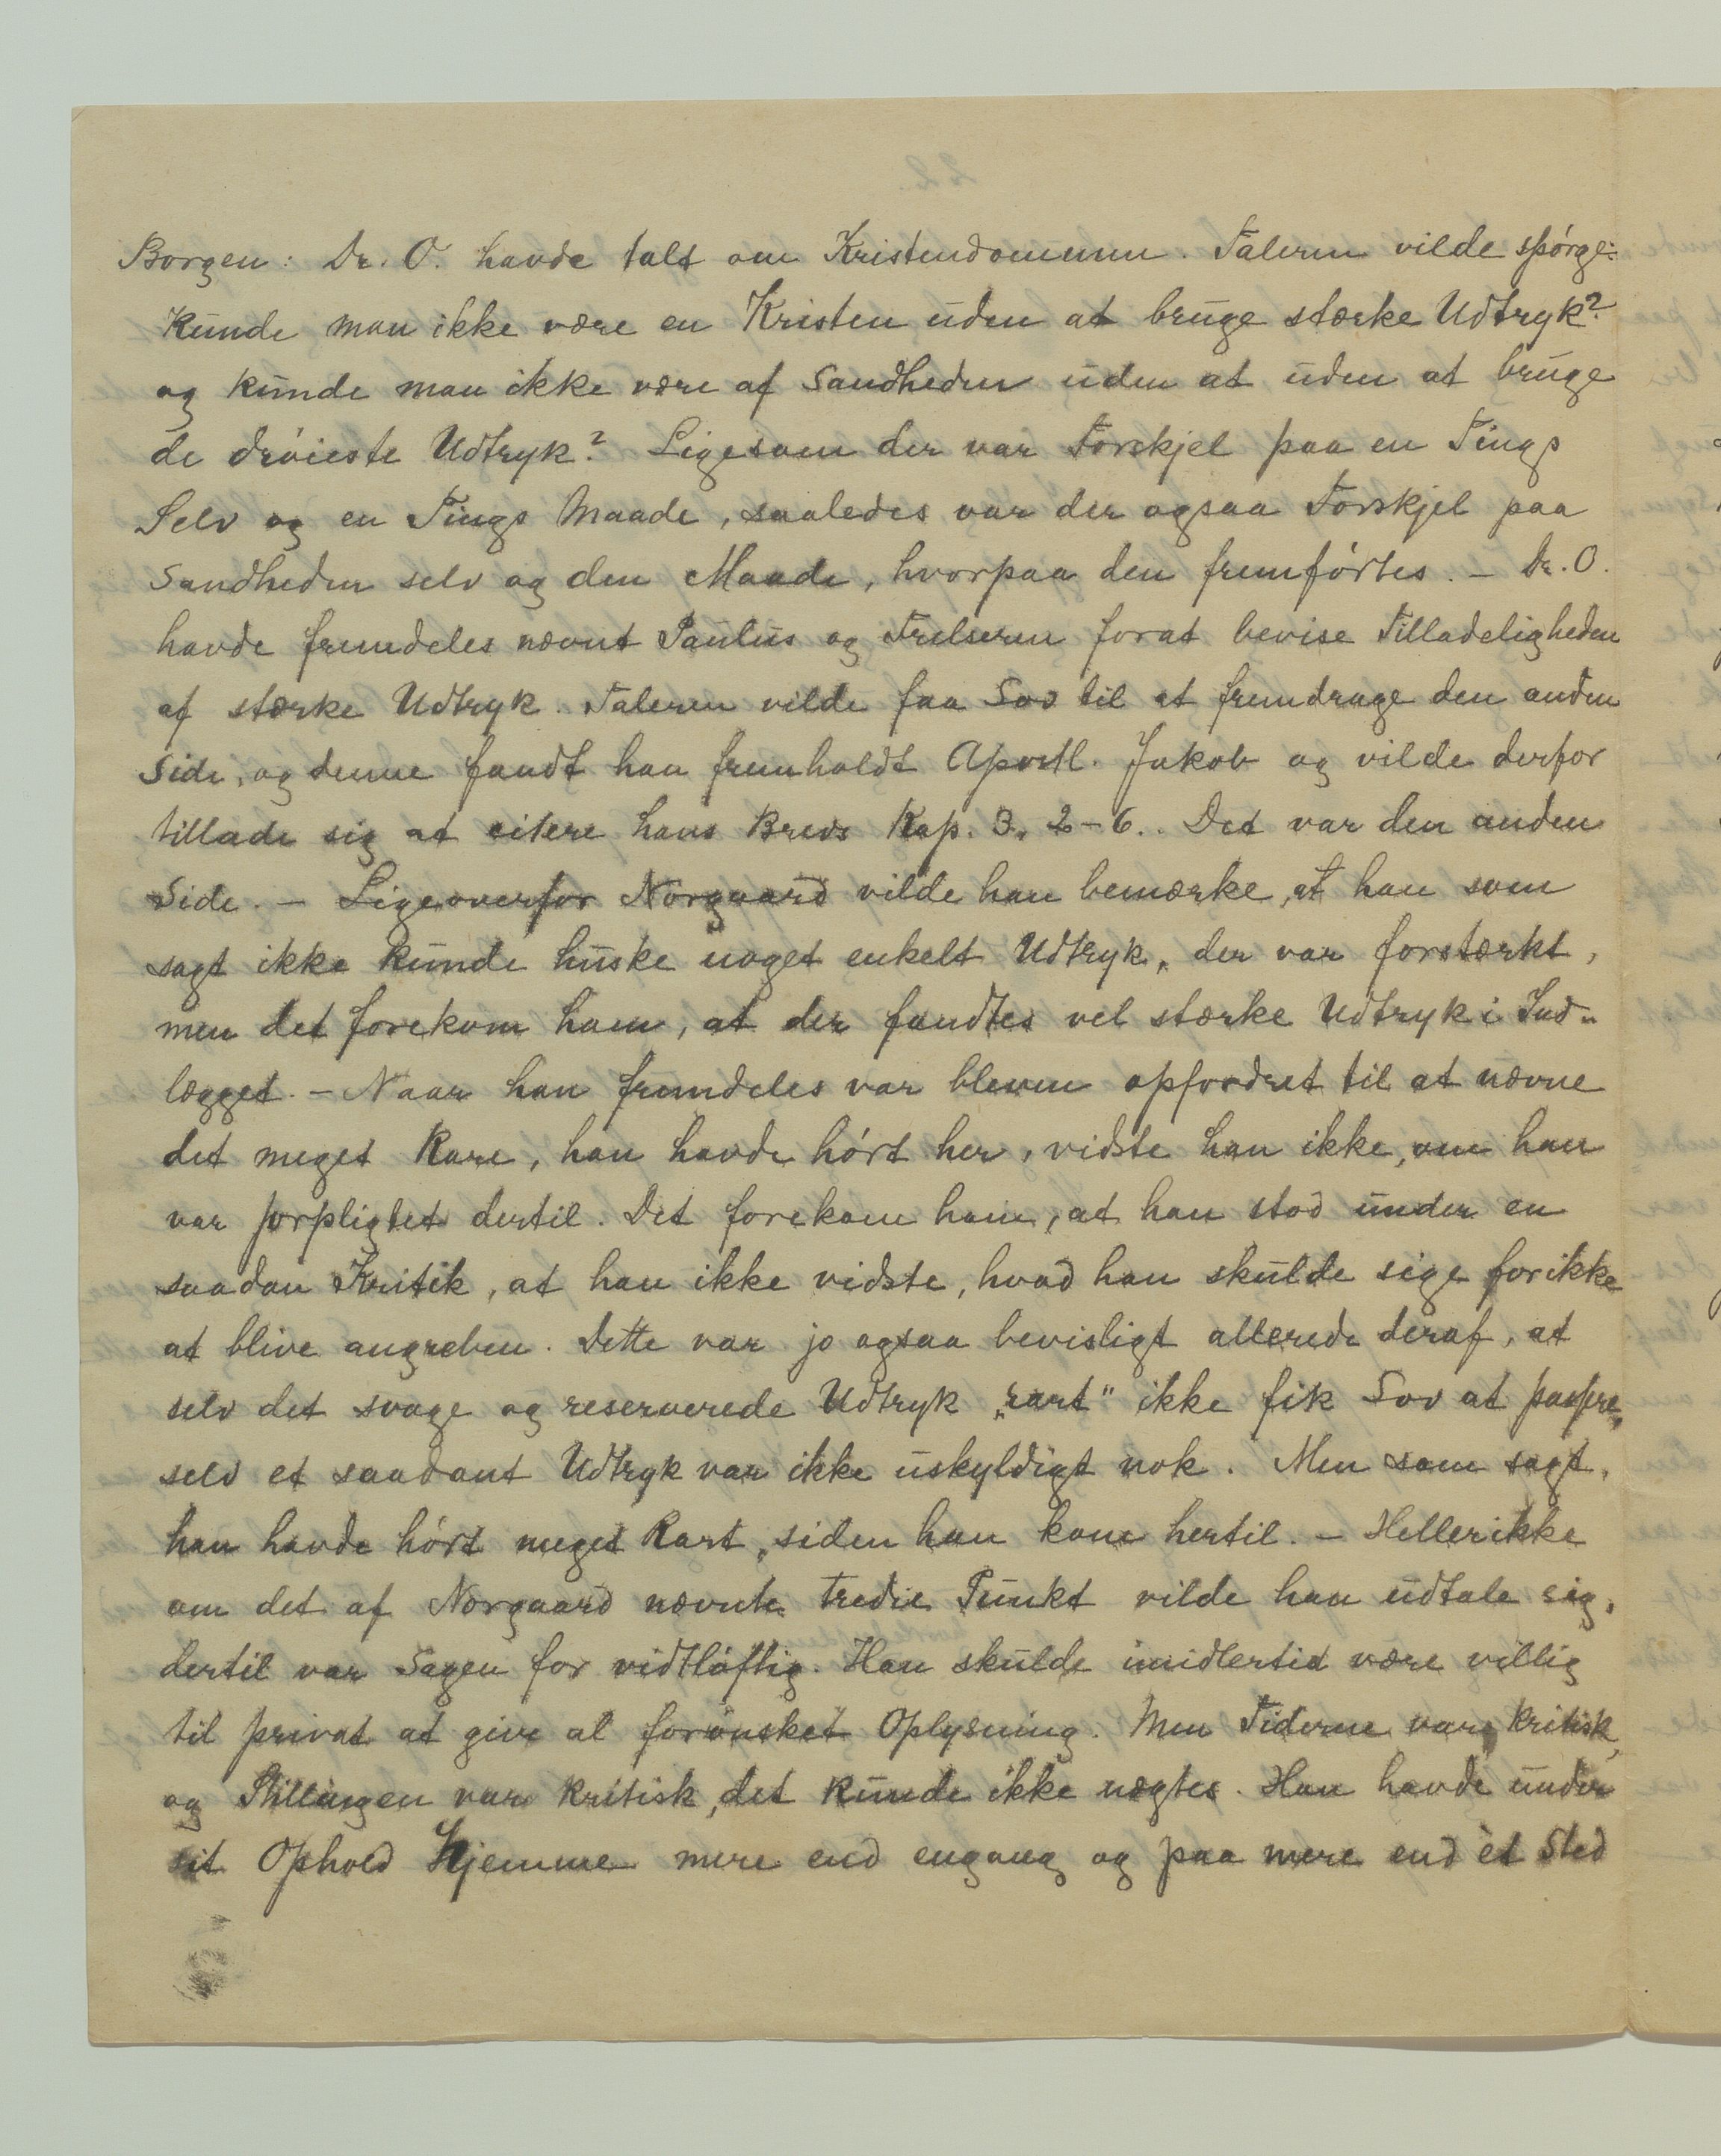 Borgen: Dr. O. havde talt om Kristendommen. Taleren vilde spórge:
Kunde man ikke være en Kristen uden at bruge stærke Udtryk?
og kunde man ikke være af Sandheden uden at uden at bruge
de dróieste Udtryk? Ligesom der var Forskjel paa en Tings
Selv og en Tings Maade, saaledes var der ogsaa Forskjel paa
Sandheden selv og den Maade, hvorpaa den fremfórtes. – Dr. O.
havde fremdeles nævnt Paulus og Frelseren forat bevise Tilladeligheden
af stærke Udtryk. Taleren vilde faa Lov til at fremdrage den anden
Side, og denne fandt han fremholdt Apostl. Jakob og vilde derfor
tillade sig at citere hans Brevs Kap. 3, 2-6. Det var den anden
Side. – Ligeoverfor Norgaard vilde han bemærke, at han som
sagt ikke kunde huske noget enkelt Udtryk, der var forstærkt,
men det forekom ham, at der fandtes vel stærke Udtryk i Ind-
lægget. – Naar han fremdeles var bleven opfordret til at nævne
det meget Rare, han havde hórt her, vidste han ikke, om han
var forpligtet dertil. Det forekom ham, at han stod under en
saadan Kritik, at han ikke vidste, hvad han skulde sige for ikke
at blive angreben. Dette var jo ogsaa bevisligt allerede deraf, at
selv det svage og reserverede Udtryk „rart" ikke fik Lov at passere,
selv et saadant Udtryk var ikke uskyldigt nok. Men som sagt,
han havde hórt meget Rart, siden han kom hertil. – Heller ikke
om det af Norgaard nævnte tredie Punkt vilde han udtale sig,
dertil var Sagen for vidtlóftig. Han skulde imidlertid være villig
til privat at give al forónsket Oplysning. Men Tiderne vare kritisk,
og Stillingen var kritisk, det kunde ikke nægtes. Han havde under
sit Ophold Hjemme mere end engang og paa mere end èt Sted